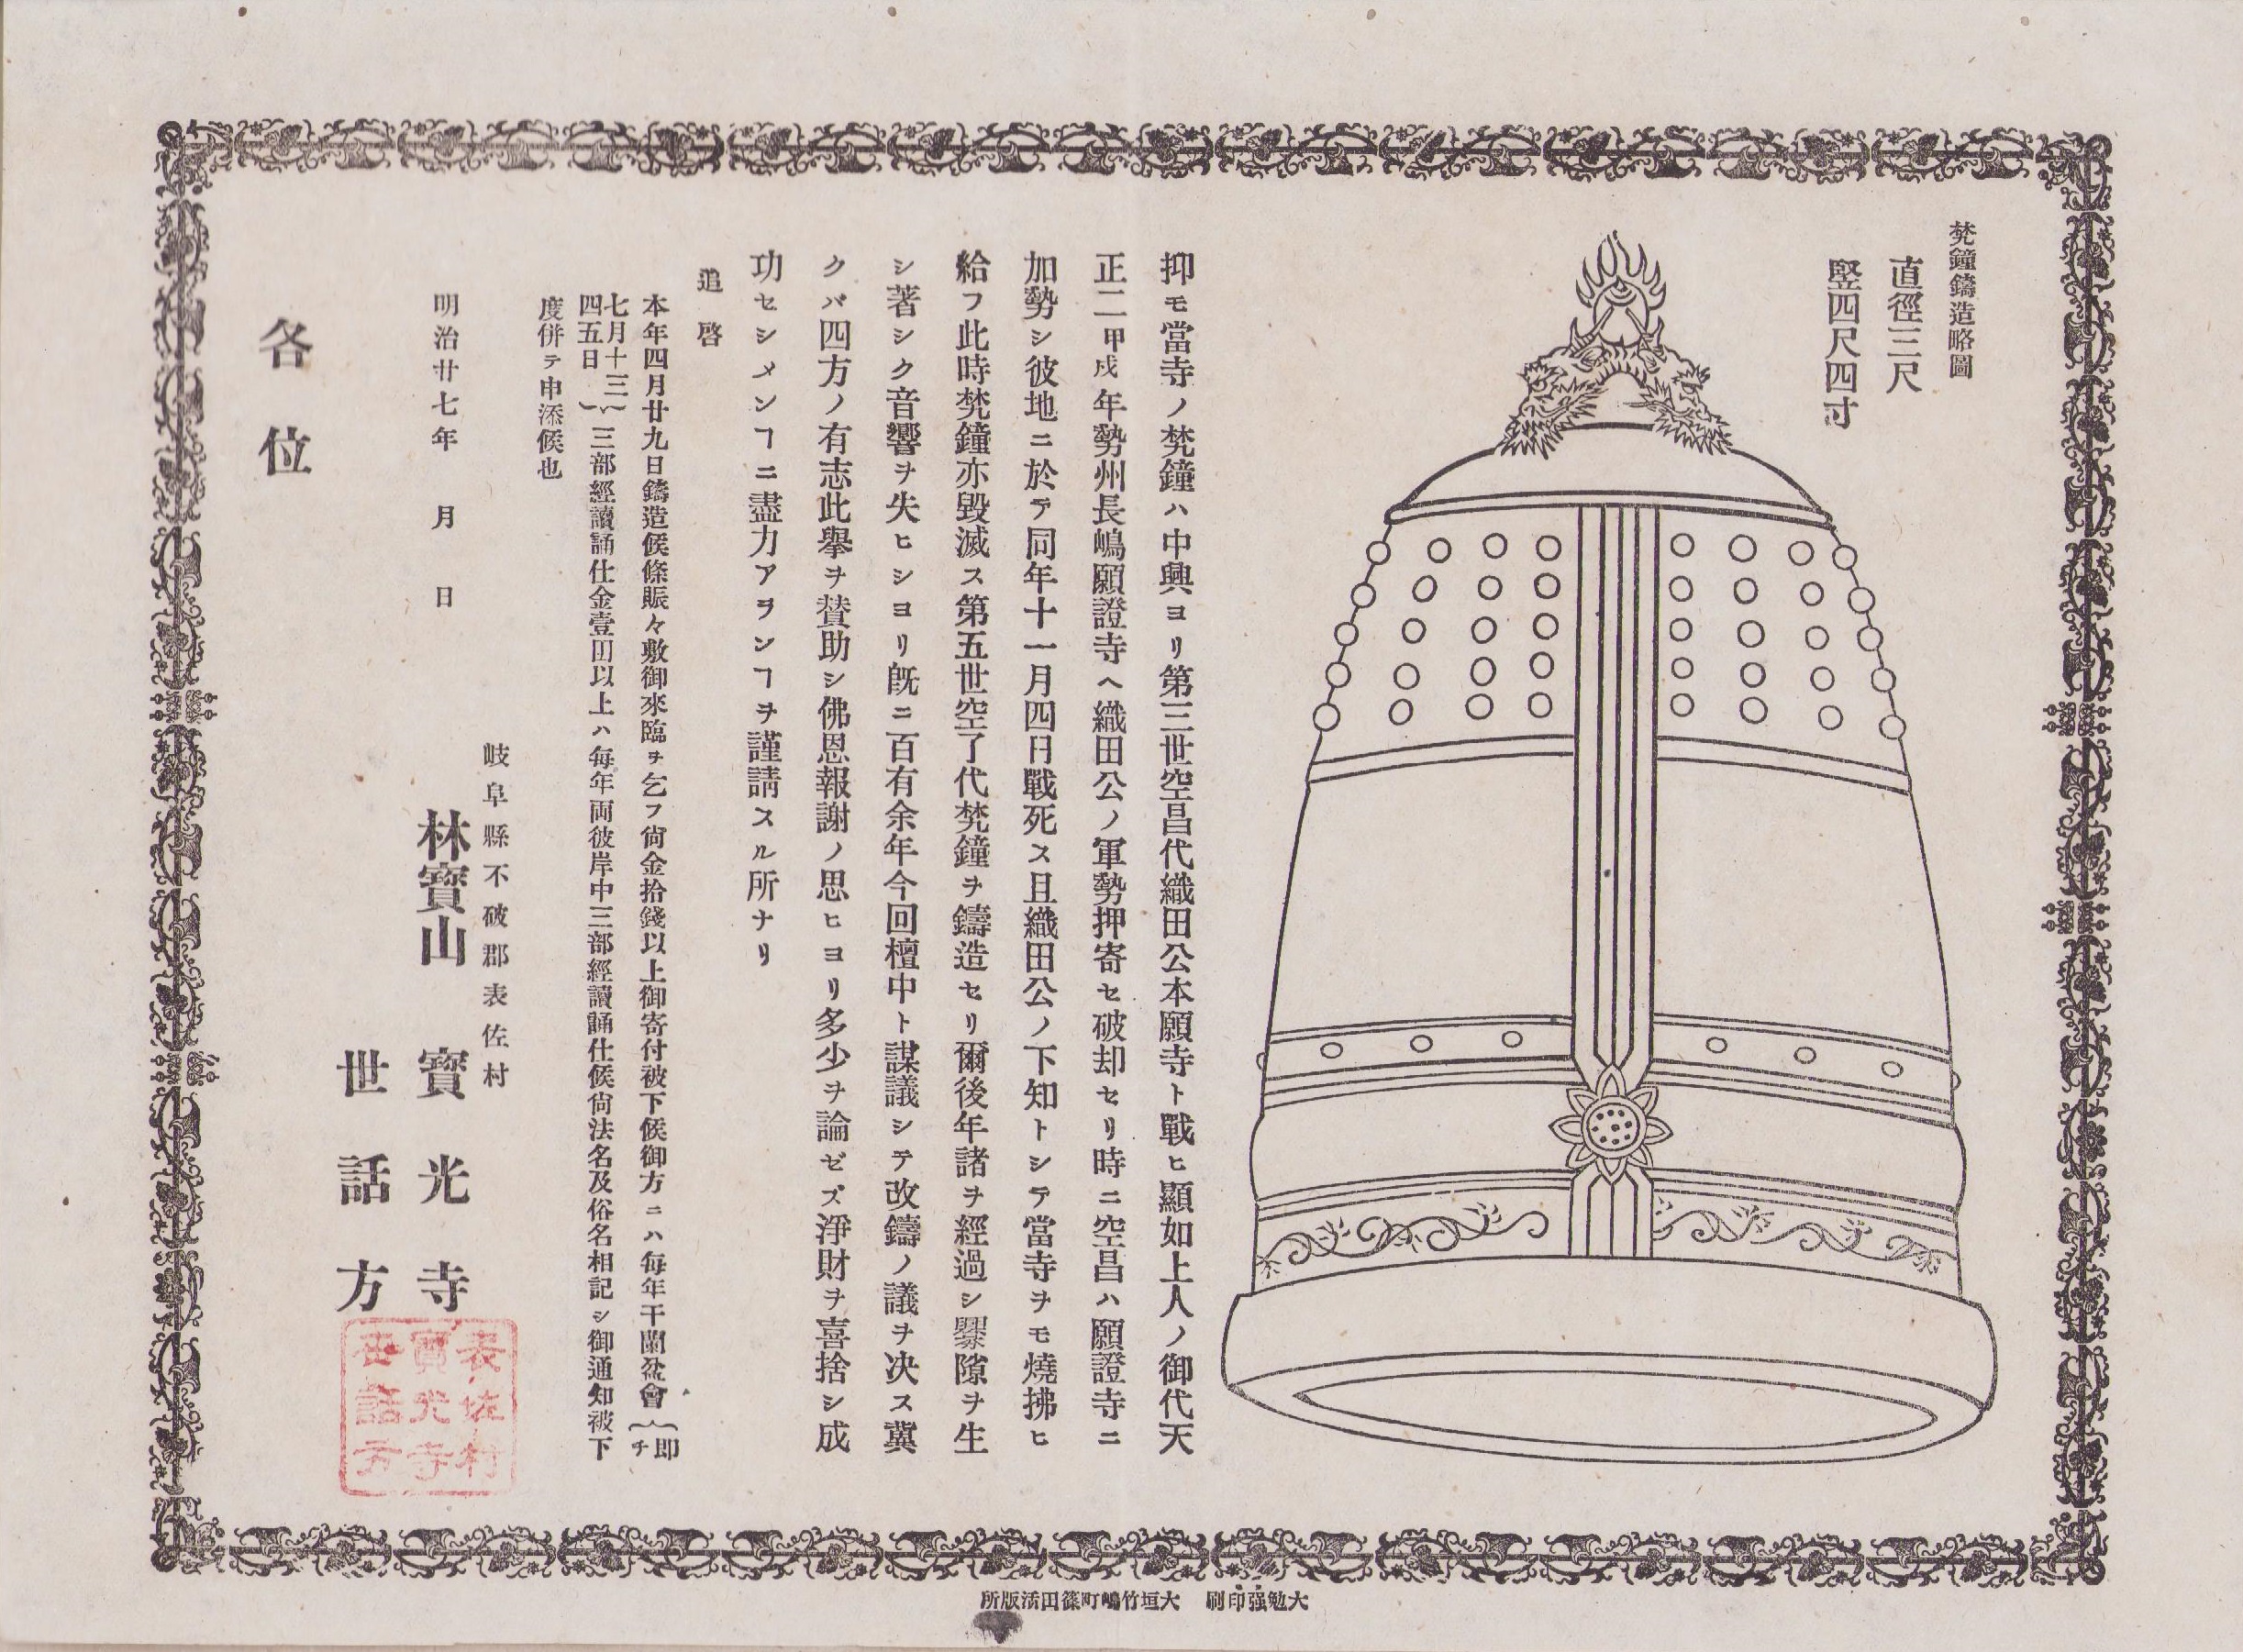 梵鐘鑄造略圖
直徑三尺
竪四尺四寸
抑モ當寺ノ梵鐘ハ中興ヨリ第三世空昌代織田公本願寺ト戰ヒ顯如上人ノ御代天
正二甲戌年勢州長嶋願證寺ヘ織田公ノ軍勢押寄セ破却セリ時ニ空昌ハ願證寺ニ
加勢シ彼地ニ於テ同年十一月四日戰死ス且織田公ノ下知トシテ當寺ヲモ燒拂ヒ
給フ此時梵鐘亦毀滅ス第五世空了代梵鐘ヲ鑄造セリ爾後年諸ヲ經過シ釁隙ヲ生
シ著シク音響ヲ失ヒシヨリ既ニ百有余年今回檀中ト謀議シテ改鑄ノ議ヲ决ス冀
クバ四方ノ有志此擧ヲ賛助シ佛恩報謝ノ思ヒヨリ多少ヲ論ゼズ淨財ヲ喜捨シ成
功セシメンヿニ盡力アヲンヿヲ謹請スル所ナリ
追啓
本年四月廿九日鑄造候條賑々敷御來臨ヲ乞フ尙金拾錢以上御寄付被下候御方ニハ每年干蘭盆會(即チ
七月十三四五日)三部經讀誦仕金壹囬以上ハ每年両彼岸中三部經讀誦仕候尙法名及俗名相記シ御通知被下
度併テ申添候也
岐阜縣不破郡表佐村
明治廿七年 月 日
林寶山 寶光寺
世話方
各位
表佐村
寶光寺
世話方
大勉强印刷 大垣竹嶋町篠田活版所